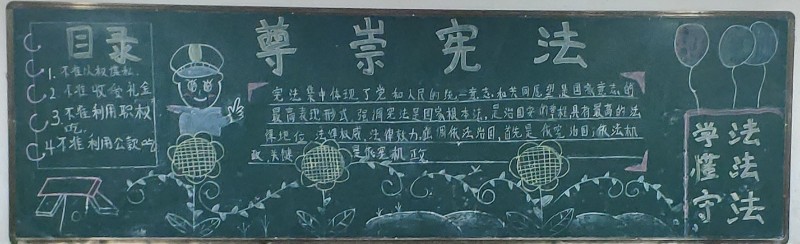 目录
1.不准以权谋私
2 不准收受礼金
3 不准利用职权
吃
4 不准利用公款吃
尊崇宪法
宪法集中体现了党和人民的统一意志和共同愿望是国家意志的
最高表现形式,强调宪法是国家根本法,是治国安邦的章程具有最高的法
律地位、法律权威、法律效力,依法治国,首先是依宪治国;依法执
政,关键是依宪执政
学法
懂法
守法